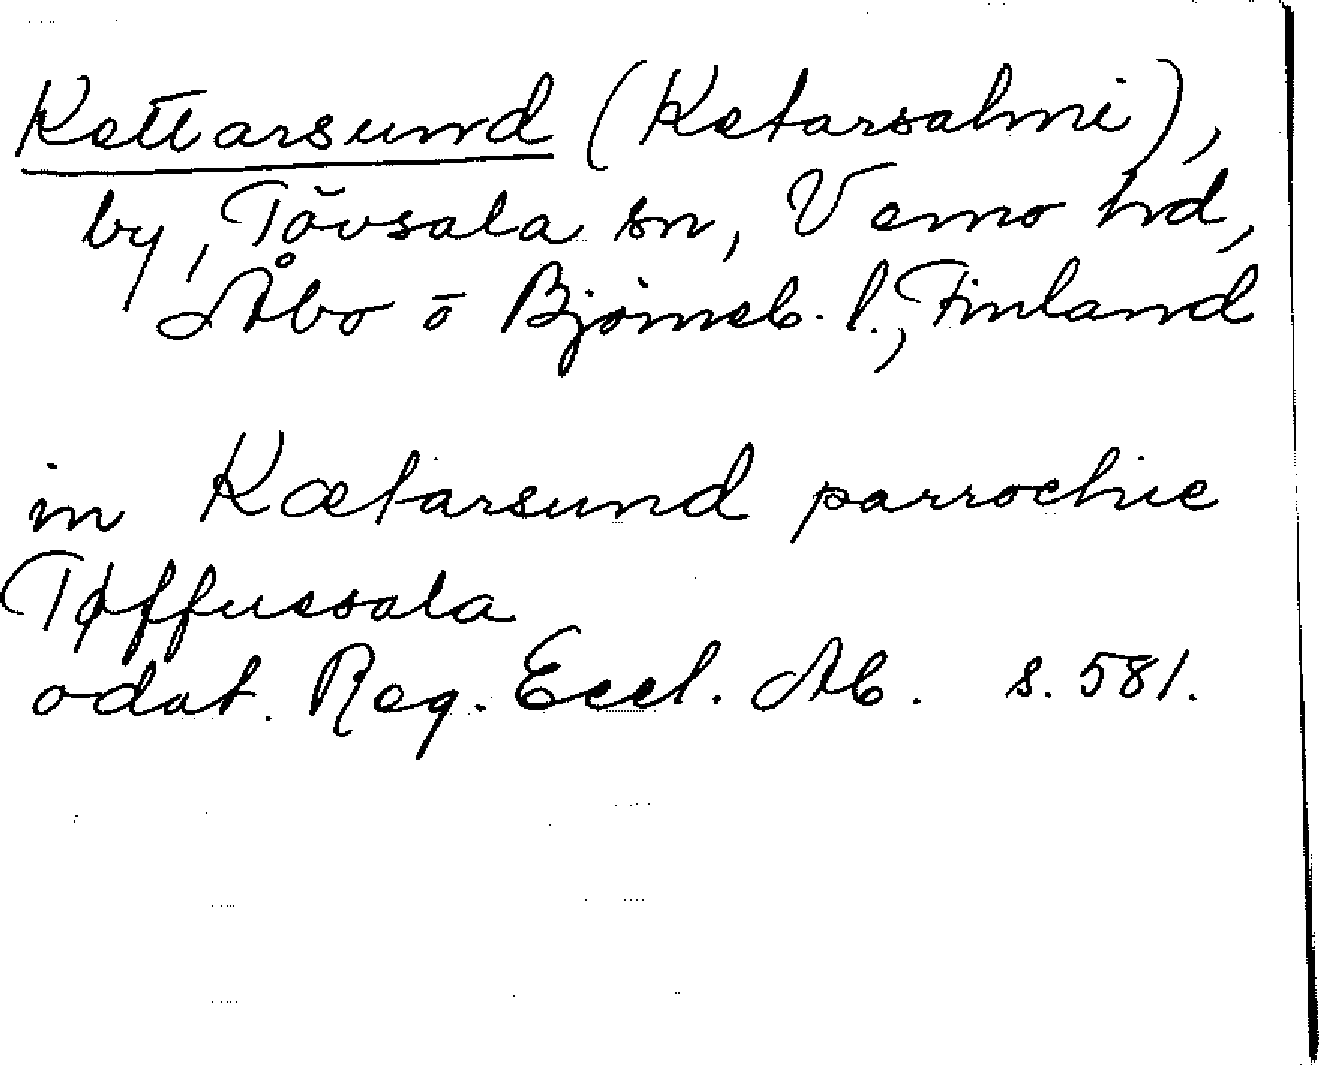 Kettarsund (Ketarsalmi),
by, Tövsala sn, Vemo hd,
Åbo o Björneb. l., Finland
in Kætarsund parrochie
Tøffuesala
odat. Reg. Eccl. Ab. s. 581.